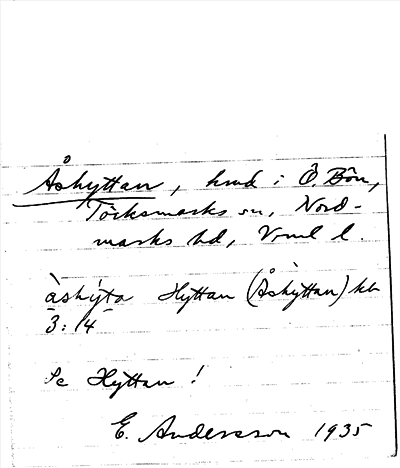 Åshyttan, hmd i Ö. Bön,
Töcksmarks sn, Nord-
marks hd, Vrml l.
àshy̍ta Hyttan (Åshyttan) kb
3:14
Se Hyttan!
E. Andersson 1935